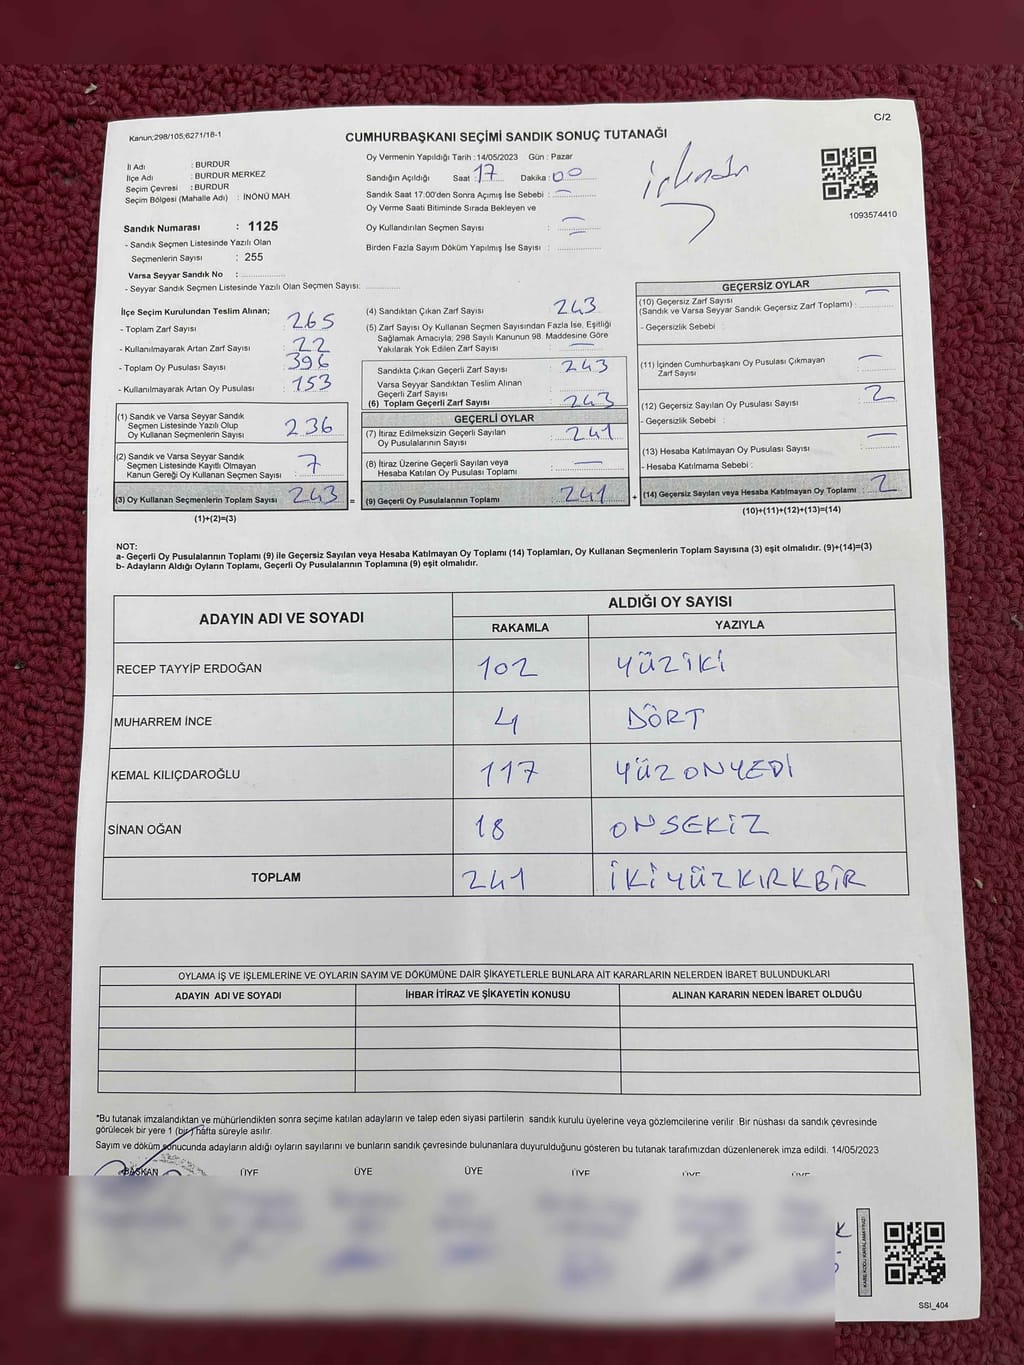 Kanun;298/105;6271/18-1
C/2
CUMHURBAŞKANI SEÇİMİ SANDIK SONUÇ TUTANAĞI
İl Adı : BURDUR
İlçe Adı : BURDUR MERKEZ
Seçim Çevresi : BURDUR
Seçim Bölgesi (Mahalle Adı) : İNÖNÜ MAH.
Sandık Numarası : 1125
- Sandık Seçmen Listesinde Yazılı Olan
Seçmenlerin Sayısı : 255
Varsa Seyyar Sandık No :
- Seyyar Sandık Seçmen Listesinde Yazılı Olan Seçmen Sayısı:
Oy Vermenin Yapıldığı Tarih : 14/05/2023 Gün : Pazar
Sandığın Açıldığı Saat : 17 Dakika : 00
Sandık Saat 17:00'den Sonra Açımış İse Sebebi : —
Oy Verme Saati Bitiminde Sırada Bekleyen ve
Oy Kullandırılan Seçmen Sayısı :
Birden Fazla Sayım Döküm Yapılmış İse Sayısı :
1093574410
İlçe Seçim Kurulundan Teslim Alınan;
- Toplam Zarf Sayısı : 265
- Kullanılmayarak Artan Zarf Sayısı : 22
- Toplam Oy Pusulası Sayısı : 396
- Kullanılmayarak Artan Oy Pusulası : 153
(1) Sandık ve Varsa Seyyar Sandık
Seçmen Listesinde Yazılı Olup
Oy Kullanan Seçmenlerin Sayısı : 236
(2) Sandık ve Varsa Seyyar Sandık
Seçmen Listesinde Kayıtlı Olmayan
Kanun Gereği Oy Kullanan Seçmen Sayısı : 7
(3) Oy Kullanan Seçmenlerin Toplam Sayısı : 243 =
(1)+(2)=(3)
(4) Sandıktan Çıkan Zarf Sayısı : 243
(5) Zarf Sayısı Oy Kullanan Seçmen Sayısından Fazla İse, Eşitliği
Sağlamak Amacıyla, 298 Sayılı Kanunun 98. Maddesine Göre
Yakılarak Yok Edilen Zarf Sayısı : —
Sandıkta Çıkan Geçerli Zarf Sayısı : 243
Varsa Seyyar Sandıktan Teslim Alınan
Geçerli Zarf Sayısı :
(6) Toplam Geçerli Zarf Sayısı : 243
GEÇERLİ OYLAR
(7) İtiraz Edilmeksizin Geçerli Sayılan
Oy Pusulalarının Sayısı : 241
(8) İtiraz Üzerine Geçerli Sayılan veya
Hesaba Katılan Oy Pusulası Toplamı : —
(9) Geçerli Oy Pusulalarının Toplamı : 241 +
GEÇERSİZ OYLAR
(10) Geçersiz Zarf Sayısı
(Sandık ve Varsa Seyyar Sandık Geçersiz Zarf Toplamı) : —
- Geçersizlik Sebebi :
(11) İçinden Cumhurbaşkanı Oy Pusulası Çıkmayan
Zarf Sayısı : —
(12) Geçersiz Sayılan Oy Pusulası Sayısı : 2
- Geçersizlik Sebebi :
(13) Hesaba Katılmayan Oy Pusulası Sayısı : —
- Hesaba Katılmama Sebebi :
(14) Geçersiz Sayılan veya Hesaba Katılmayan Oy Toplamı : 2
(10)+(11)+(12)+(13)=(14)
NOT:
a- Geçerli Oy Pusulalarının Toplamı (9) ile Geçersiz Sayılan veya Hesaba Katılmayan Oy Toplamı (14) Toplamları, Oy Kullanan Seçmenlerin Toplam Sayısına (3) eşit olmalıdır. (9)+(14)=(3)
b- Adayların Aldığı Oyların Toplamı, Geçerli Oy Pusulalarının Toplamına (9) eşit olmalıdır.
ADAYIN ADI VE SOYADI ALDIĞI OY SAYISI
RAKAMLA YAZIYLA
RECEP TAYYİP ERDOĞAN 102 YÜZİKİ
MUHARREM İNCE 4 DÖRT
KEMAL KILIÇDAROĞLU 117 YÜZONYEDİ
SİNAN OĞAN 18 ONSEKİZ
TOPLAM 241 İKİYÜZKIRKBİR
OYLAMA İŞ VE İŞLEMLERİNE VE OYLARIN SAYIM VE DÖKÜMÜNE DAİR ŞİKAYETLERLE BUNLARA AİT KARARLARIN NELERDEN İBARET BULUNDUKLARI
ADAYIN ADI VE SOYADI İHBAR İTİRAZ VE ŞİKAYETİN KONUSU ALINAN KARARIN NEDEN İBARET OLDUĞU
*Bu tutanak imzalandıktan ve mühürlendikten sonra seçime katılan adayların ve talep eden siyasi partilerin sandık kurulu üyelerine veya gözlemcilerine verilir Bir nüshası da sandık çevresinde
görülecek bir yere 1 (bir) hafta süreyle asılır.
Sayım ve döküm sonucunda adayların aldığı oyların sayılarını ve bunların sandık çevresinde bulunanlara duyurulduğunu gösteren bu tutanak tarafımızdan düzenlenerek imza edildi. 14/05/2023
BAŞKAN ÜYE ÜYE ÜYE ÜYE ÜYE ÜYE
SSI_404